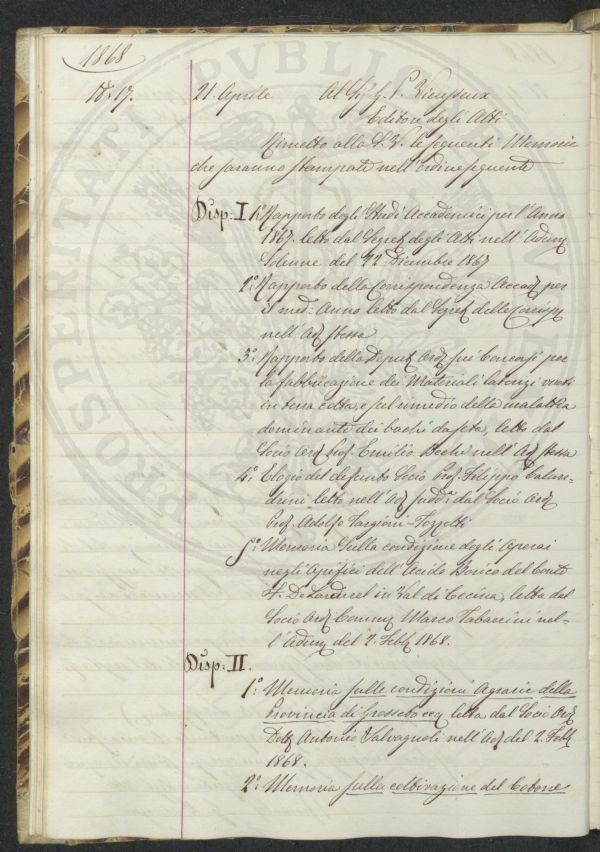 1868
N. 17. 21 Aprile Al Sig. G. P. Vieusseux
Editore degli Atti
Rimetto alla S. V. le seguenti Memorie
che saranno stampate nell'ordine seguente
Disp: I. 1.° Rapporto degli Studi Accademici per l'Anno
1867. letto dal Segret degli Atti nell'Adunz
Solenne del 22 Dicembre 1867
2.° Rapporto della Corrispondenza Accad per
il med: Anno letto dal Segret delle Corrisp
nell'Ad stessa
3.° Rapporto della Deput Ord sui Concorsi per
la fabbricazione dei Materiali laterizi vuoti
in terra cotta, e pel rimedio della malattia
dominante dei bachi da seta, letto dal
Socio Ord Prof. Emilio Bechi nell'Ad stessa
4.° Elogio del defunto Socio Prof. Filippo Calan-
drini letto nell'Ad sudd.a dal Socio Ord
Prof Adolfo Targioni-Tozzetti
5.° Memoria Sulla condizione degli Operai
negli Opifici dell'Acido Borico del Conte
F. De Larderel in Val di Cecina, letta dal
Socio Ord Comm Marco Tabarrini nel-
l'Adunz del 2. Febb 1868.
Disp: II.
1.° Memoria sulle condizioni Agrarie della
Provincia di Grosseto ecc letta dal Socio Ord
Dott Antonio Salvagnoli nell'Ad del 2. Febb
1868.
2.° Memoria sulla coltivazione del Cotone
PROSPERITATI PUBLICAE